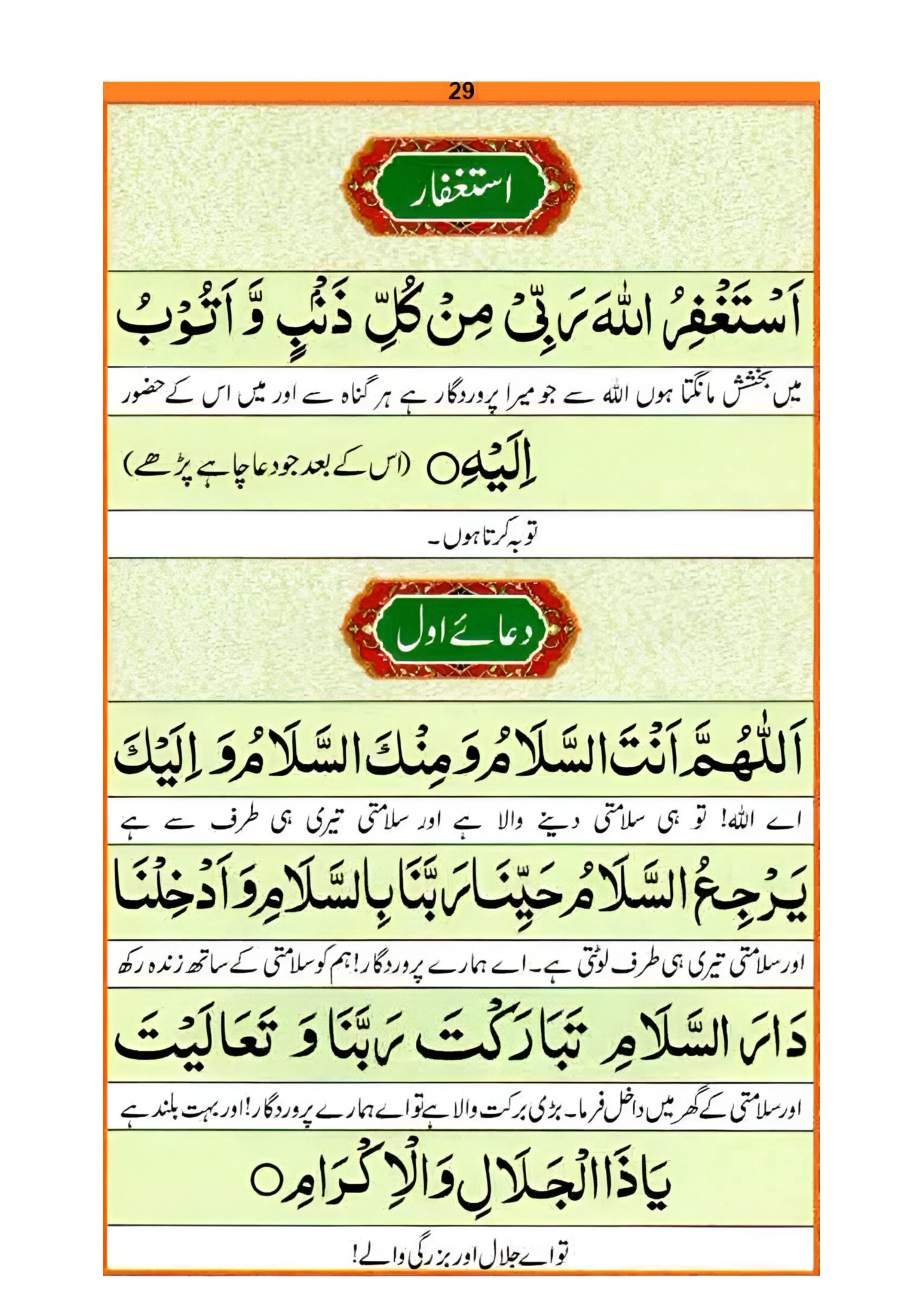 29
استغفار
اَسْتَغْفِرُ اللهَ رَبِّیْ مِنْ کُلِّ ذَنْۢبٍ وَّ اَتُوْبُ
میں بخشش مانگتا ہوں اللہ سے جو میرا پروردگار ہے ہر گناہ سے اور میں اس کے حضور
اِلَیْهِ○ (اس کے بعد جو دعا چاہے پڑھے)
توبہ کرتا ہوں۔
دعائے اول
اَللّٰهُمَّ اَنْتَ السَّلَامُ وَمِنْكَ السَّلَامُ وَ اِلَیْكَ
اے اللہ! تو ہی سلامتی دینے والا ہے اور سلامتی تیری ہی طرف سے ہے
یَرْجِعُ السَّلَامُ حَیِّنَا رَبَّنَا بِالسَّلَامِ وَ اَدْخِلْنَا
اور سلامتی تیری ہی طرف لوٹتی ہے۔ اے ہمارے پروردگار! ہم کو سلامتی کے ساتھ زندہ رکھ
دَارَ السَّلَامِ تَبَارَكْتَ رَبَّنَا وَ تَعَالَیْتَ
اور سلامتی کے گھر میں داخل فرما۔ بڑی برکت والا ہے تو اے ہمارے پروردگار! اور بہت بلند ہے
یَا ذَا الْجَلَالِ وَالْاِکْرَامِ○
تو اے جلال اور بزرگی والے!